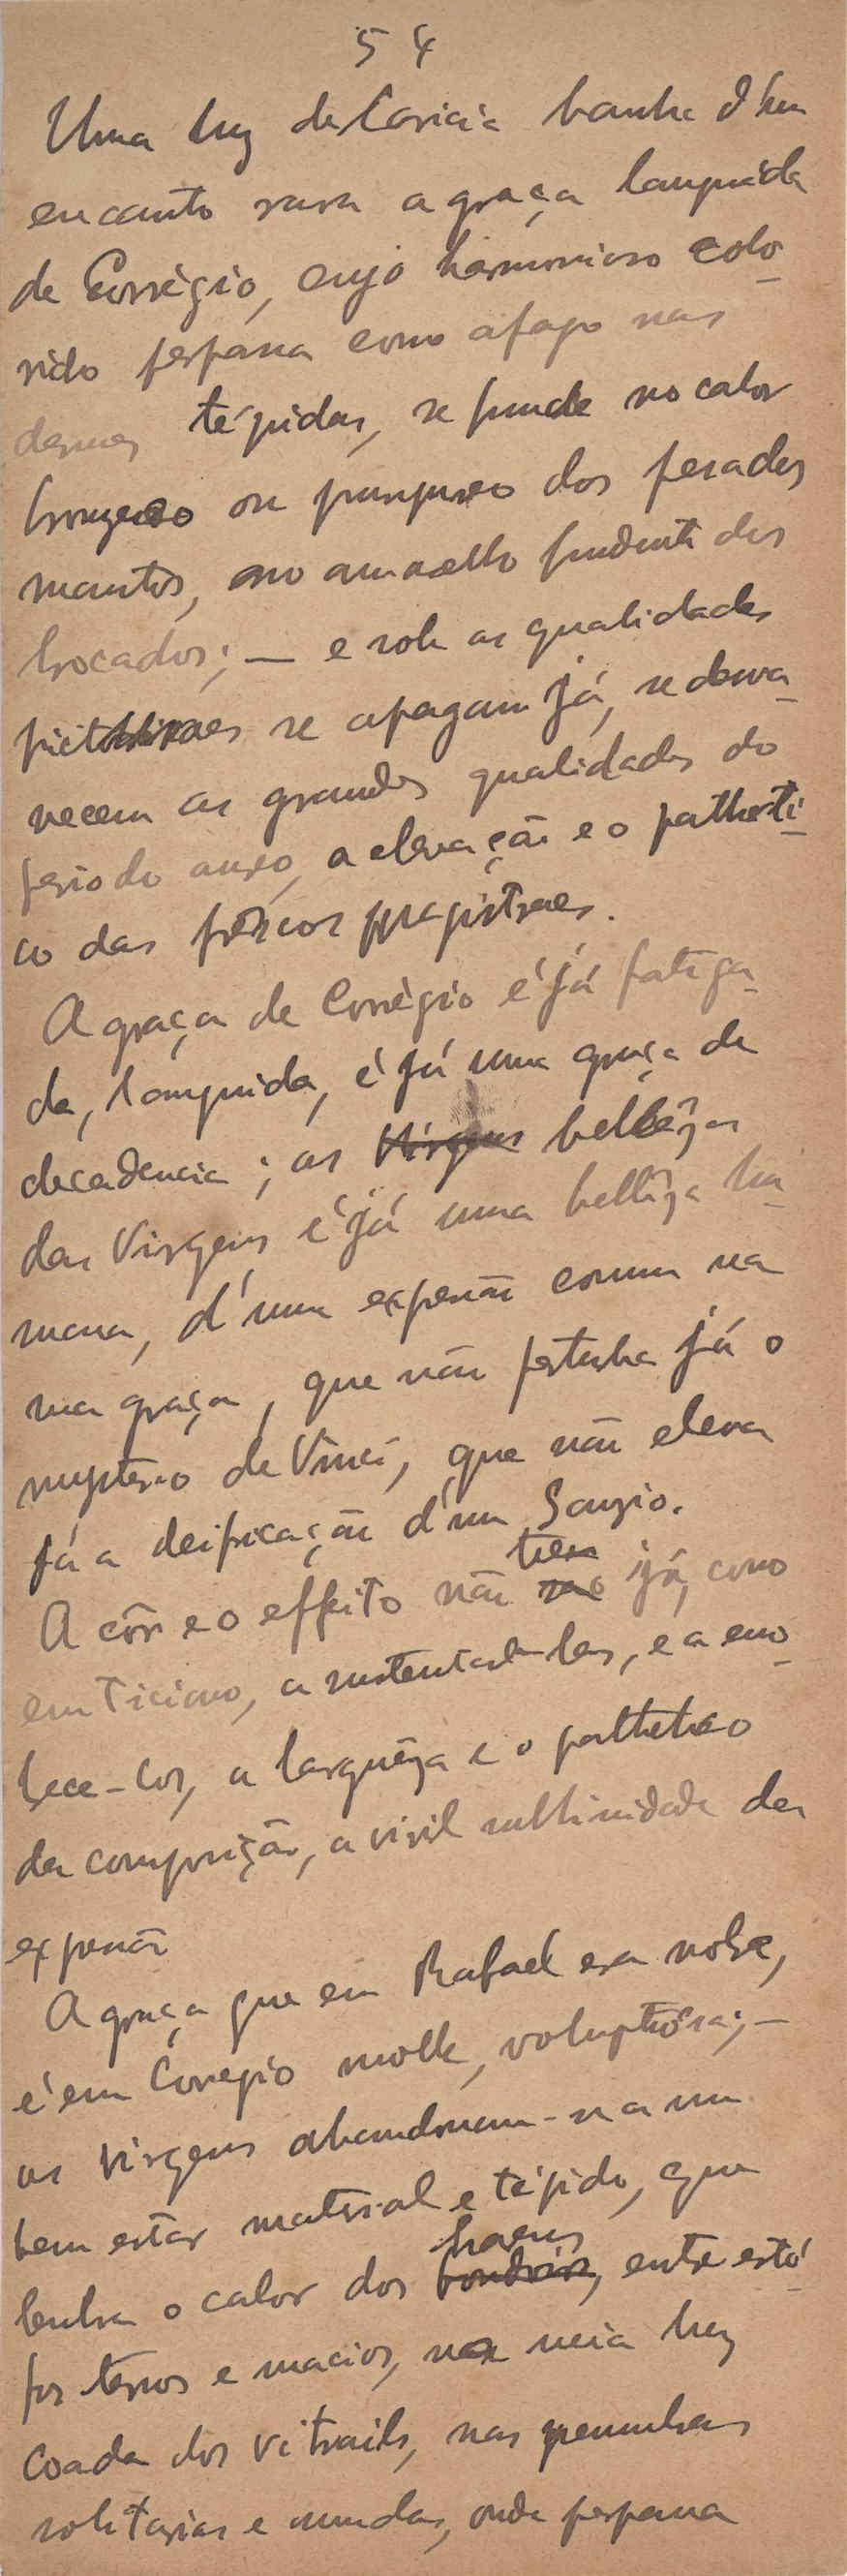 54
Uma luz de Caricia banha d'hum
encanto raro a graça languida
de Corrégio, cujo harmonioso colo-
rido perpassa como afago nas
carnes tépidas, se funde no calor
ou purpureo dos pesados
mantos, no amarello fundente dos
brocados; — e sob as qualidades
se apagam já, se desva-
necem as grandes qualidades do
periodo aureo, a elevação e o patheti-
co das magistraes.
A graça de Corrégio é já fatiga-
da, languida, é já uma graça de
decadencia; as Virgens bellêzas
das Virgens é já uma bellêza hu-
mana, d'uma expressão comum na
sua graça, que não já o
mysterio de Vinci, que não eleva
já a deificação d'um Sanzio.
A côr e o effeito não teem já, como
em Ticiano, a sustental-les, e a eno-
brece-los, a larguêza e o pathetico
da composição, a viril sublimidade da
expressão
A graça que em Rafael era nobre,
é em Corregio molle, voluptuósa; —
as Virgens abandonam-na num
bem estar material e tépido, que
lembra o calor dos harens, entre estó-
fos ternos e macios, na meia luz
coada dos vitrails, nas penumbras
solitarias e mudas, onde perpassa